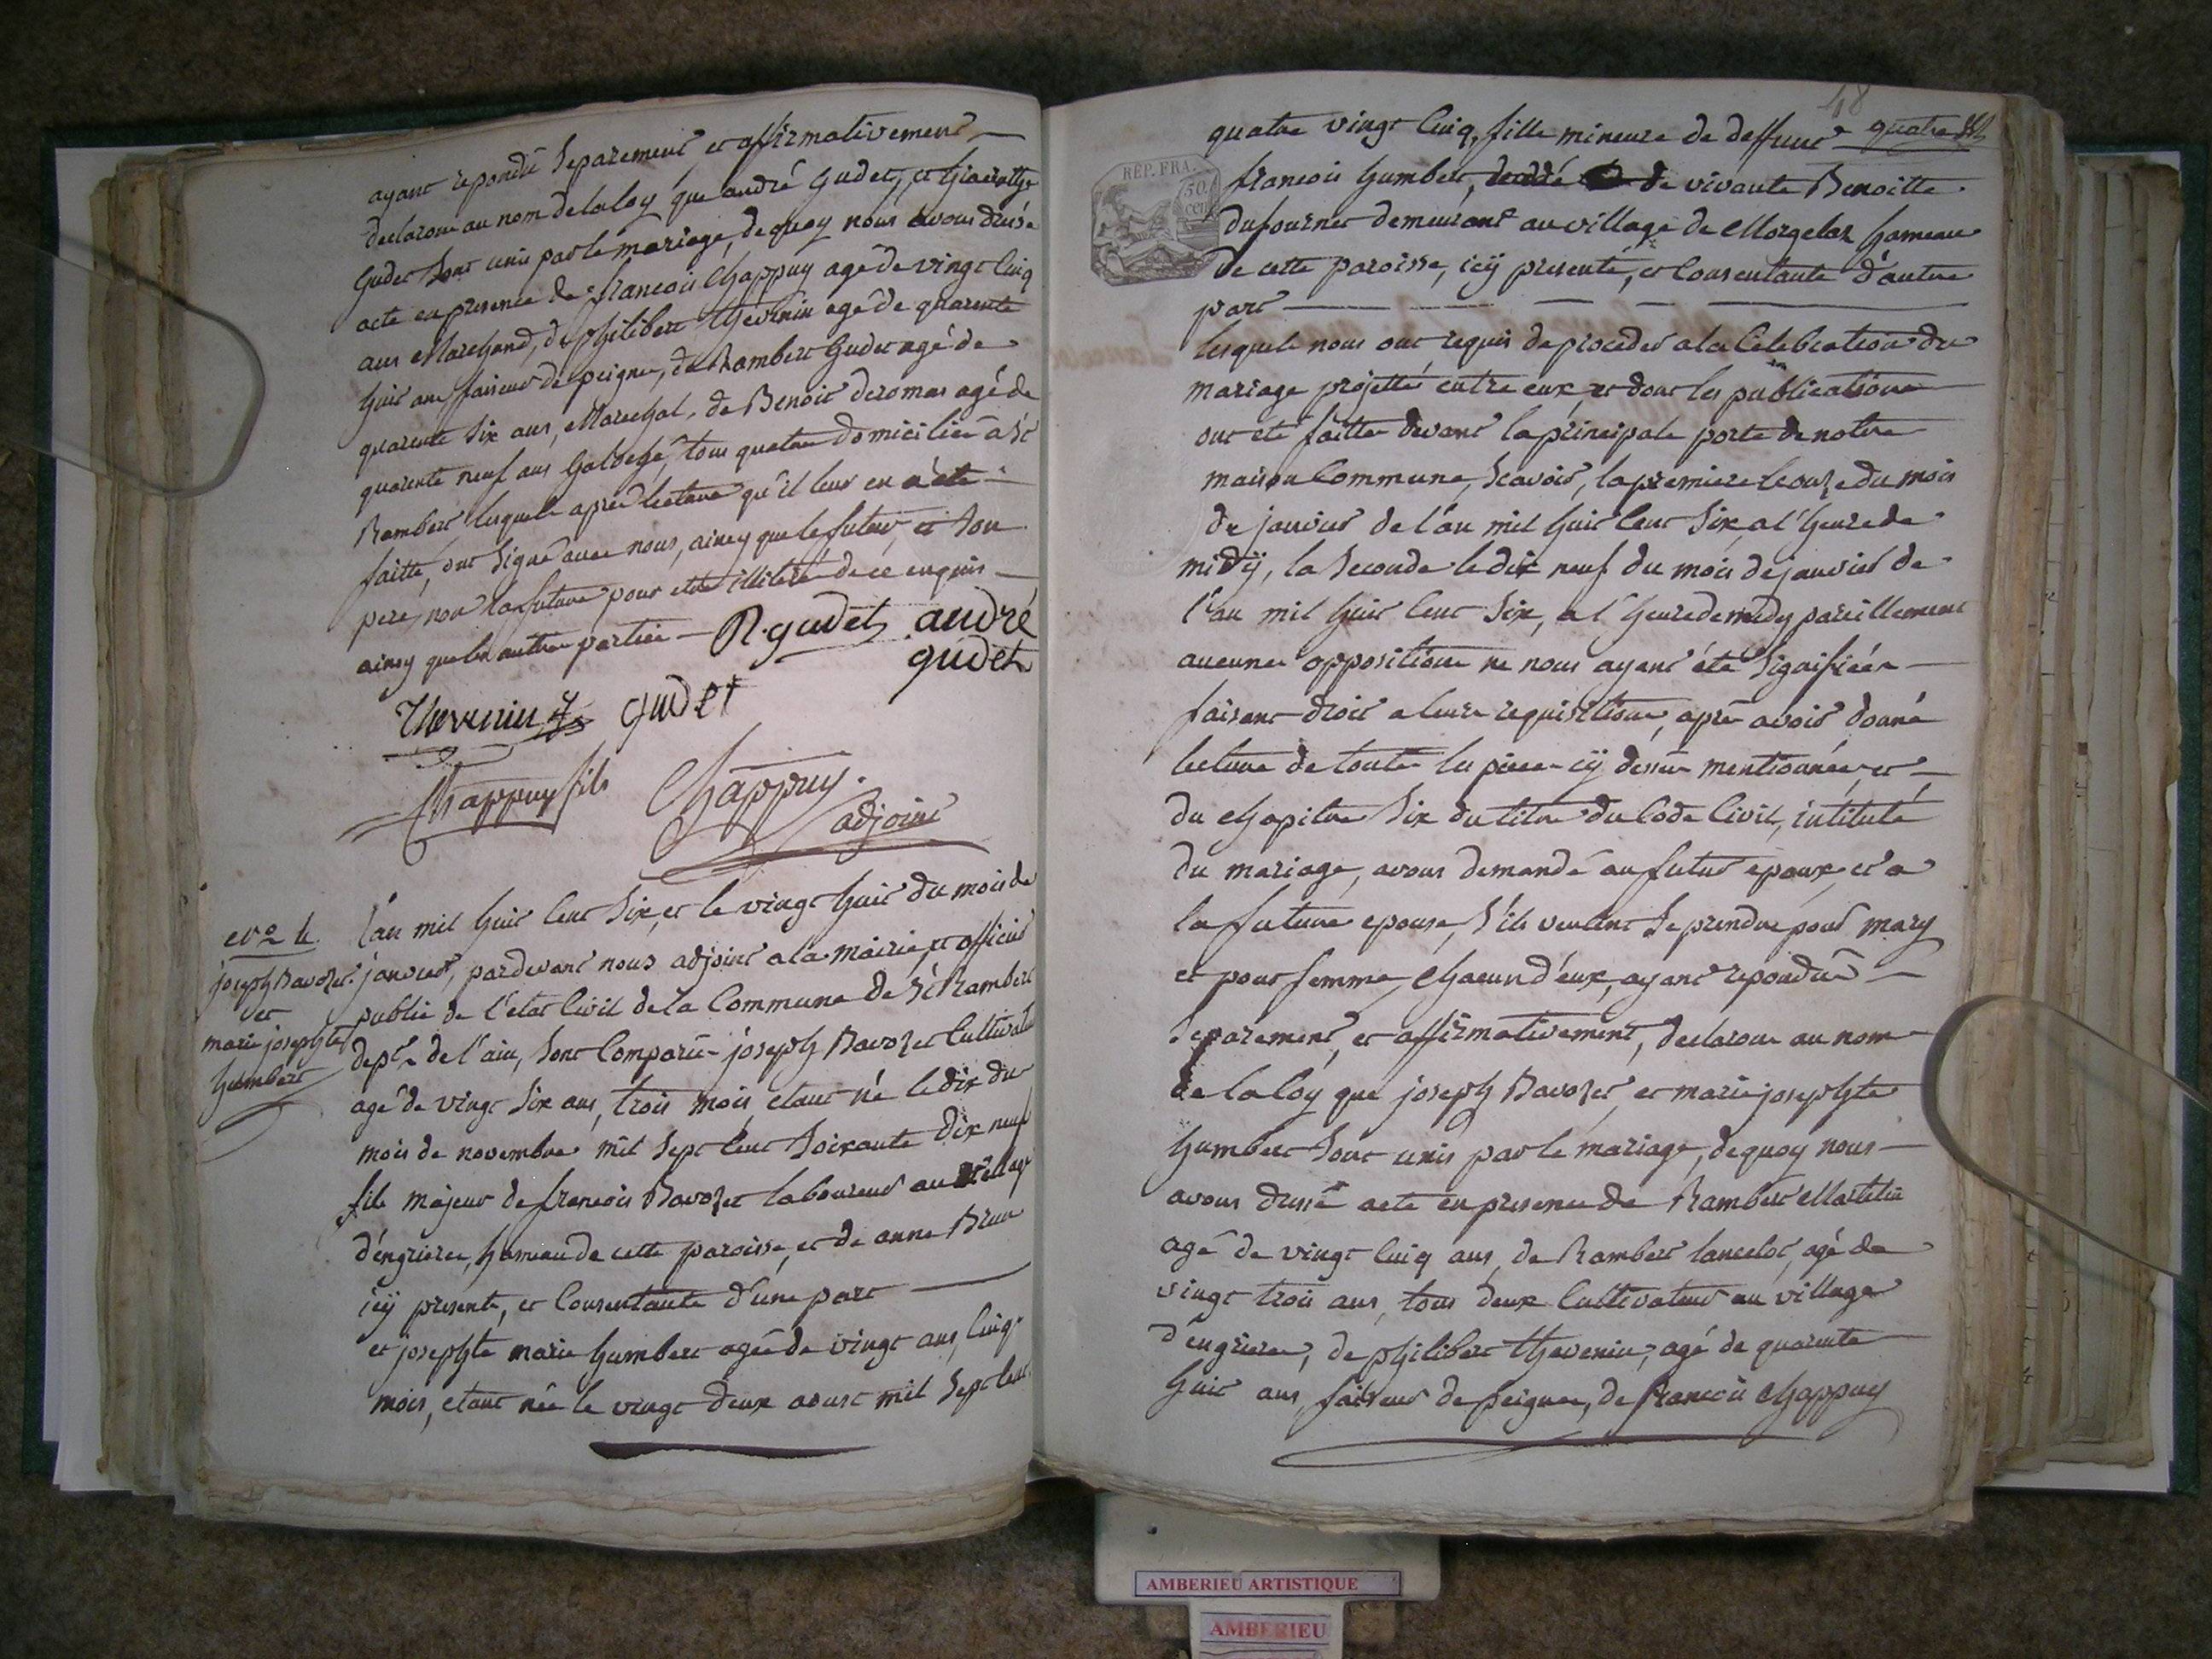 ayant repondû Separement et affirmativement
declarons au nom de la loy que andré Gudet, et hiacinthe
Gudet Sont unis par le mariage, de quoy nous avons dressé
acte en presence de françois Chappuy agé de vingt Cinq
ans Marchand, de philibert thevenin agé de quarente
huit ans faiseur de peignes, de Rambert Gudet agé de
quarente Six ans, Marechal, de Benoit deromas agé de
quarente neuf ans Galvogé, tous quatre domiciliés à St
Rambert lesquels après lecture qu'il leur en a été
faitte, ont Signé avec nous, ainsy que le futur, et Son
pere, non la future pour etre illiterée de ce enquis
ainsy que les autres parties R. gudet andré
gudet
Thevenin gudet
Chappuy fils Chappuy
adjoint
No 4.
joseph Ravozet
et
marie josephte
humbert
L'an mil huit Cent Six, et le vingt huit du mois de
janvier, pardevant nous adjoint a la mairie, et officier
public de l'etat Civil de la Commune de St Rambert
dept de l'ain, Sont Comparus joseph Ravozet Cultivateur
agé de vingt Six ans, trois mois, etant né le dix du
mois de novembre mil Sept Cent Soixante dix neuf
fils majeur de françois Ravozet laboureur au village
d'engrieres, hameau de cette paroisse, et de anne Brun
icÿ presents, et Consentants d'une part
et josephte marie humbert agée de vingt ans, Cinq
mois, etant née le vingt deux aoust mil Sept Cent
48
quatre
REP. FRA.
50
cen
quatre vingt Cinq, fille mineure de deffunt
françois humbert, de vivante Benoitte
dufournet demeurant au village de Morgelaz hameau
de cette paroisse, icÿ presente, et Consentante d'autre
part
lesquels nous ont requis de proceder a la Celebration du
mariage projetté entre eux, et dont les publications
ont été faittes devant la principale porte de notre
maison Commune, Scavoir, la premiere le onze du mois
de janvier de l'an mil huit Cent Six, a l'heure de
midÿ, la Seconde le dix neuf du mois de janvier de
l'an mil huit Cent Six, a l'heure de midy pareillement
aucunes oppositions ne nous ayant été Signifiées
faisant droit a leurs requisitions, après avoir donné
lecture de toutes les pieces cÿ dessus mentionnées, et
du chapitre Six du titre du Code Civil, intitulé
du mariage, avons demandé au futur epoux, et a
la future epouse, S'ils veulent Se prendre pour mary
et pour femme, chacun d'eux, ayant repondû
Separement, et affirmativement, declarons au nom
de la loy que joseph Ravozet, et marie josephte
humbert Sont unis par le mariage, de quoy nous
avons dressé acte en presence de Rambert Martelin
agé de vingt Cinq ans, de Rambert lancelot, agé de
vingt trois ans, tous deux Cultivateurs au village
d'engrieres, de philibert thevenin, agé de quarente
huit ans, faiseur de peignes, de francois Chappuy
AMBERIEU ARTISTIQUE
AMBERIEU